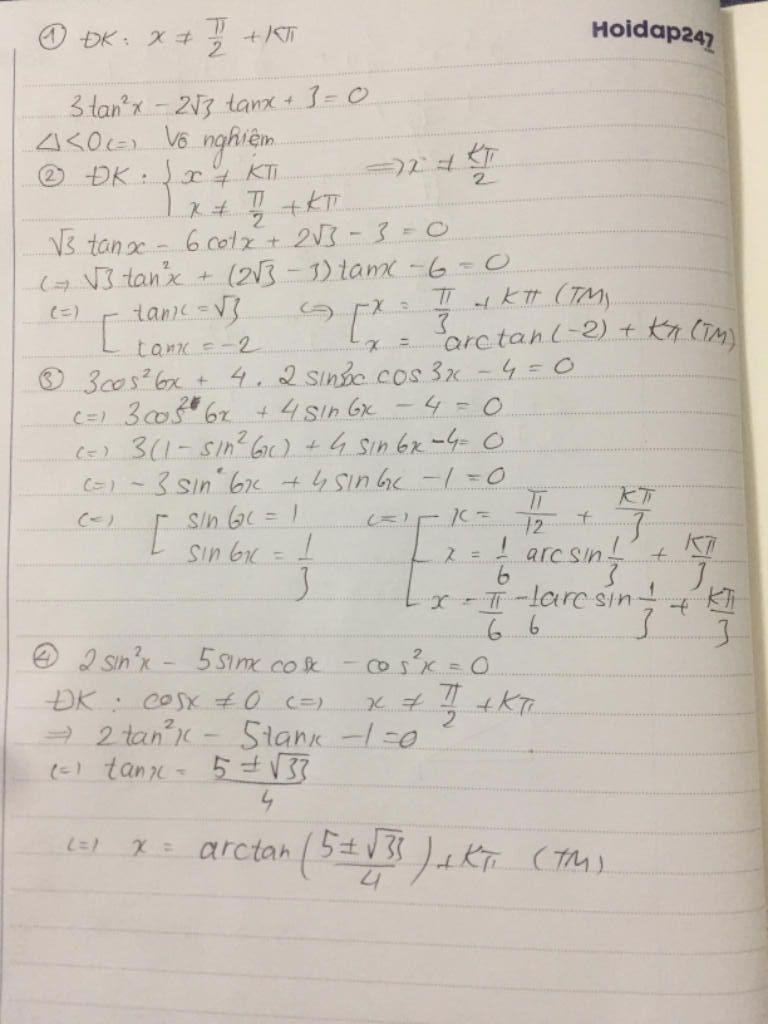 Hoidap247
① ĐK: x ≠ π/2 + Kπ
3tan²x - 2√3 tanx + 3 = 0
Δ<0 (=) Vô nghiệm
② ĐK: { x ≠ Kπ => x ≠ Kπ/2
x ≠ π/2 + Kπ
√3 tanx - 6cotx + 2√3 - 3 = 0
(=) √3 tan²x + (2√3 - 3)tanx - 6 = 0
(=) [ tanx = √3 (=) [ x = π/3 + Kπ (TM)
tanx = -2 x = arctan(-2) + Kπ (TM)
③ 3cos²6x + 4 . 2 sin3x cos3x - 4 = 0
(=) 3cos²6x + 4sin6x - 4 = 0
(=) 3(1 - sin²6x) + 4 sin6x - 4 = 0
(=) - 3 sin²6x + 4 sin6x - 1 = 0
(=) [ sin6x = 1 (=) [ x = π/12 + Kπ/3
sin6x = 1/3 x = 1/6 arcsin 1/3 + Kπ/3
x = π/6 - 1/6 arcsin 1/3 + Kπ/3
④ 2sin²x - 5sinx cosx - cos²x = 0
ĐK: cosx ≠ 0 (=) x ≠ π/2 + Kπ
=> 2tan²x - 5tanx - 1 = 0
(=) tanx = (5 ± √33)/4
(=) x = arctan((5 ± √33)/4) + Kπ (TM)